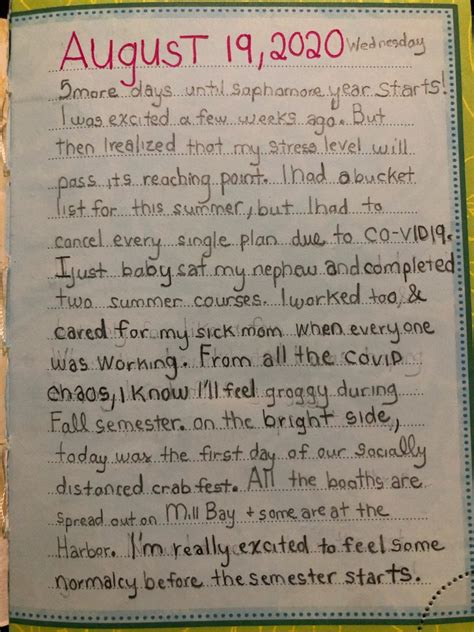 AUGUST 19, 2020 Wednesday
5 more days until saphamore year starts!
I was excited a few weeks ago. But
then I realized that my stress level will
pass its reaching point. I had a bucket
list for this summer, but I had to
cancel every single plan due to CO-VID19.
I just baby sat my nephew and completed
two summer courses. I worked too, &
cared for my sick mom when everyone
was working. From all the COVID
chaos, I know I'll feel groggy during
Fall semester. on the bright side,
today was the first day of our socially
distanced crab fest. All the booths are
spread out on Mill Bay + some are at the
Harbor. I'm really excited to feel some
normalcy before the semester starts.